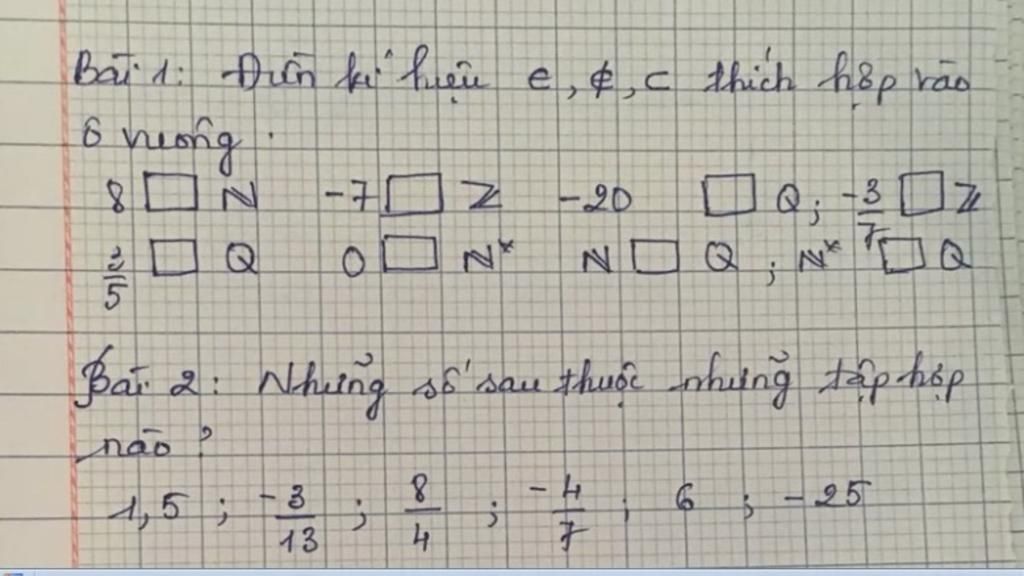 Bài 1: Điền kí hiệu ∈, ∉, ⊂ thích hợp vào
ô vuông.
8 □ N -7 □ Z -20 □ Q; -3/7 □ Z
2/5 □ Q 0 □ N* N □ Q; N* □ Q
Bài 2: Những số sau thuộc những tập hợp
nào?
1,5; -3/13; 8/4; -4/7; 6; -25